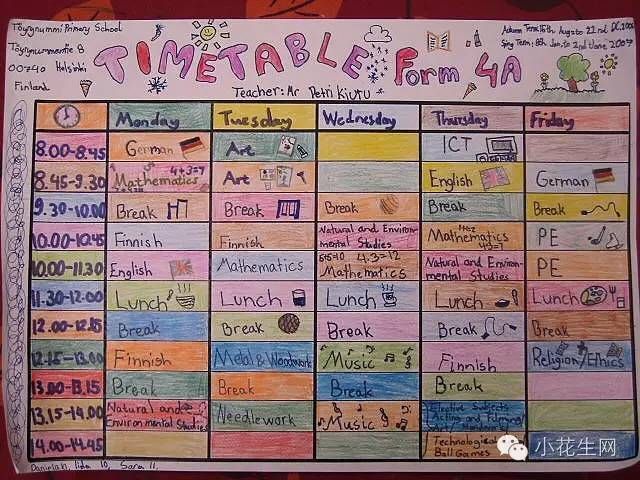 Töyrynummi Primary School
Töyrynummentie 8
00740 Helsinki
Finland
TIMETABLE Form 4A
Teacher: Mr Petri Kiutu
Autumn Term 15th Aug. to 22nd Dec. 2006
Spring Term: 8th Jan. to 2nd June 2007
Monday Tuesday Wednesday Thursday Friday
8.00-8.45 German Art ICT
8.45-9.30 Mathematics 4+3=7 Art English German
9.30-10.00 Break Break Break Break Break
10.00-10.45 Finnish Finnish Natural and Environmental Studies Mathematics PE
10.00-11.30 English Mathematics Mathematics 4.3=12 Natural and Environmental Studies PE
11.30-12.00 Lunch Lunch Lunch Lunch Lunch
12.00-12.15 Break Break Break Break Break
12.15-13.00 Finnish Metal & Woodwork Music Finnish Religion/Ethics
13.00-13.15 Break Break Break Break
13.15-14.00 Natural and Environmental Studies Needlework Music Elective Subjects
Acting and
14.00-14.45 Technological
Ball Games
小花生网